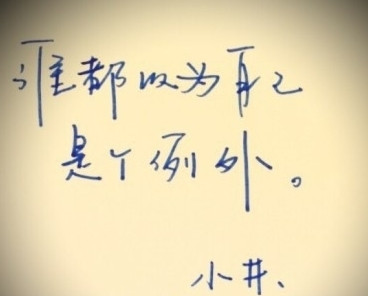 谁都以为自己
是个例外。
小井、